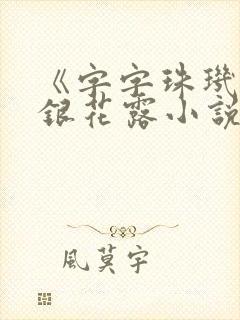 《字字珠璣
銀花露小說
風莫宇